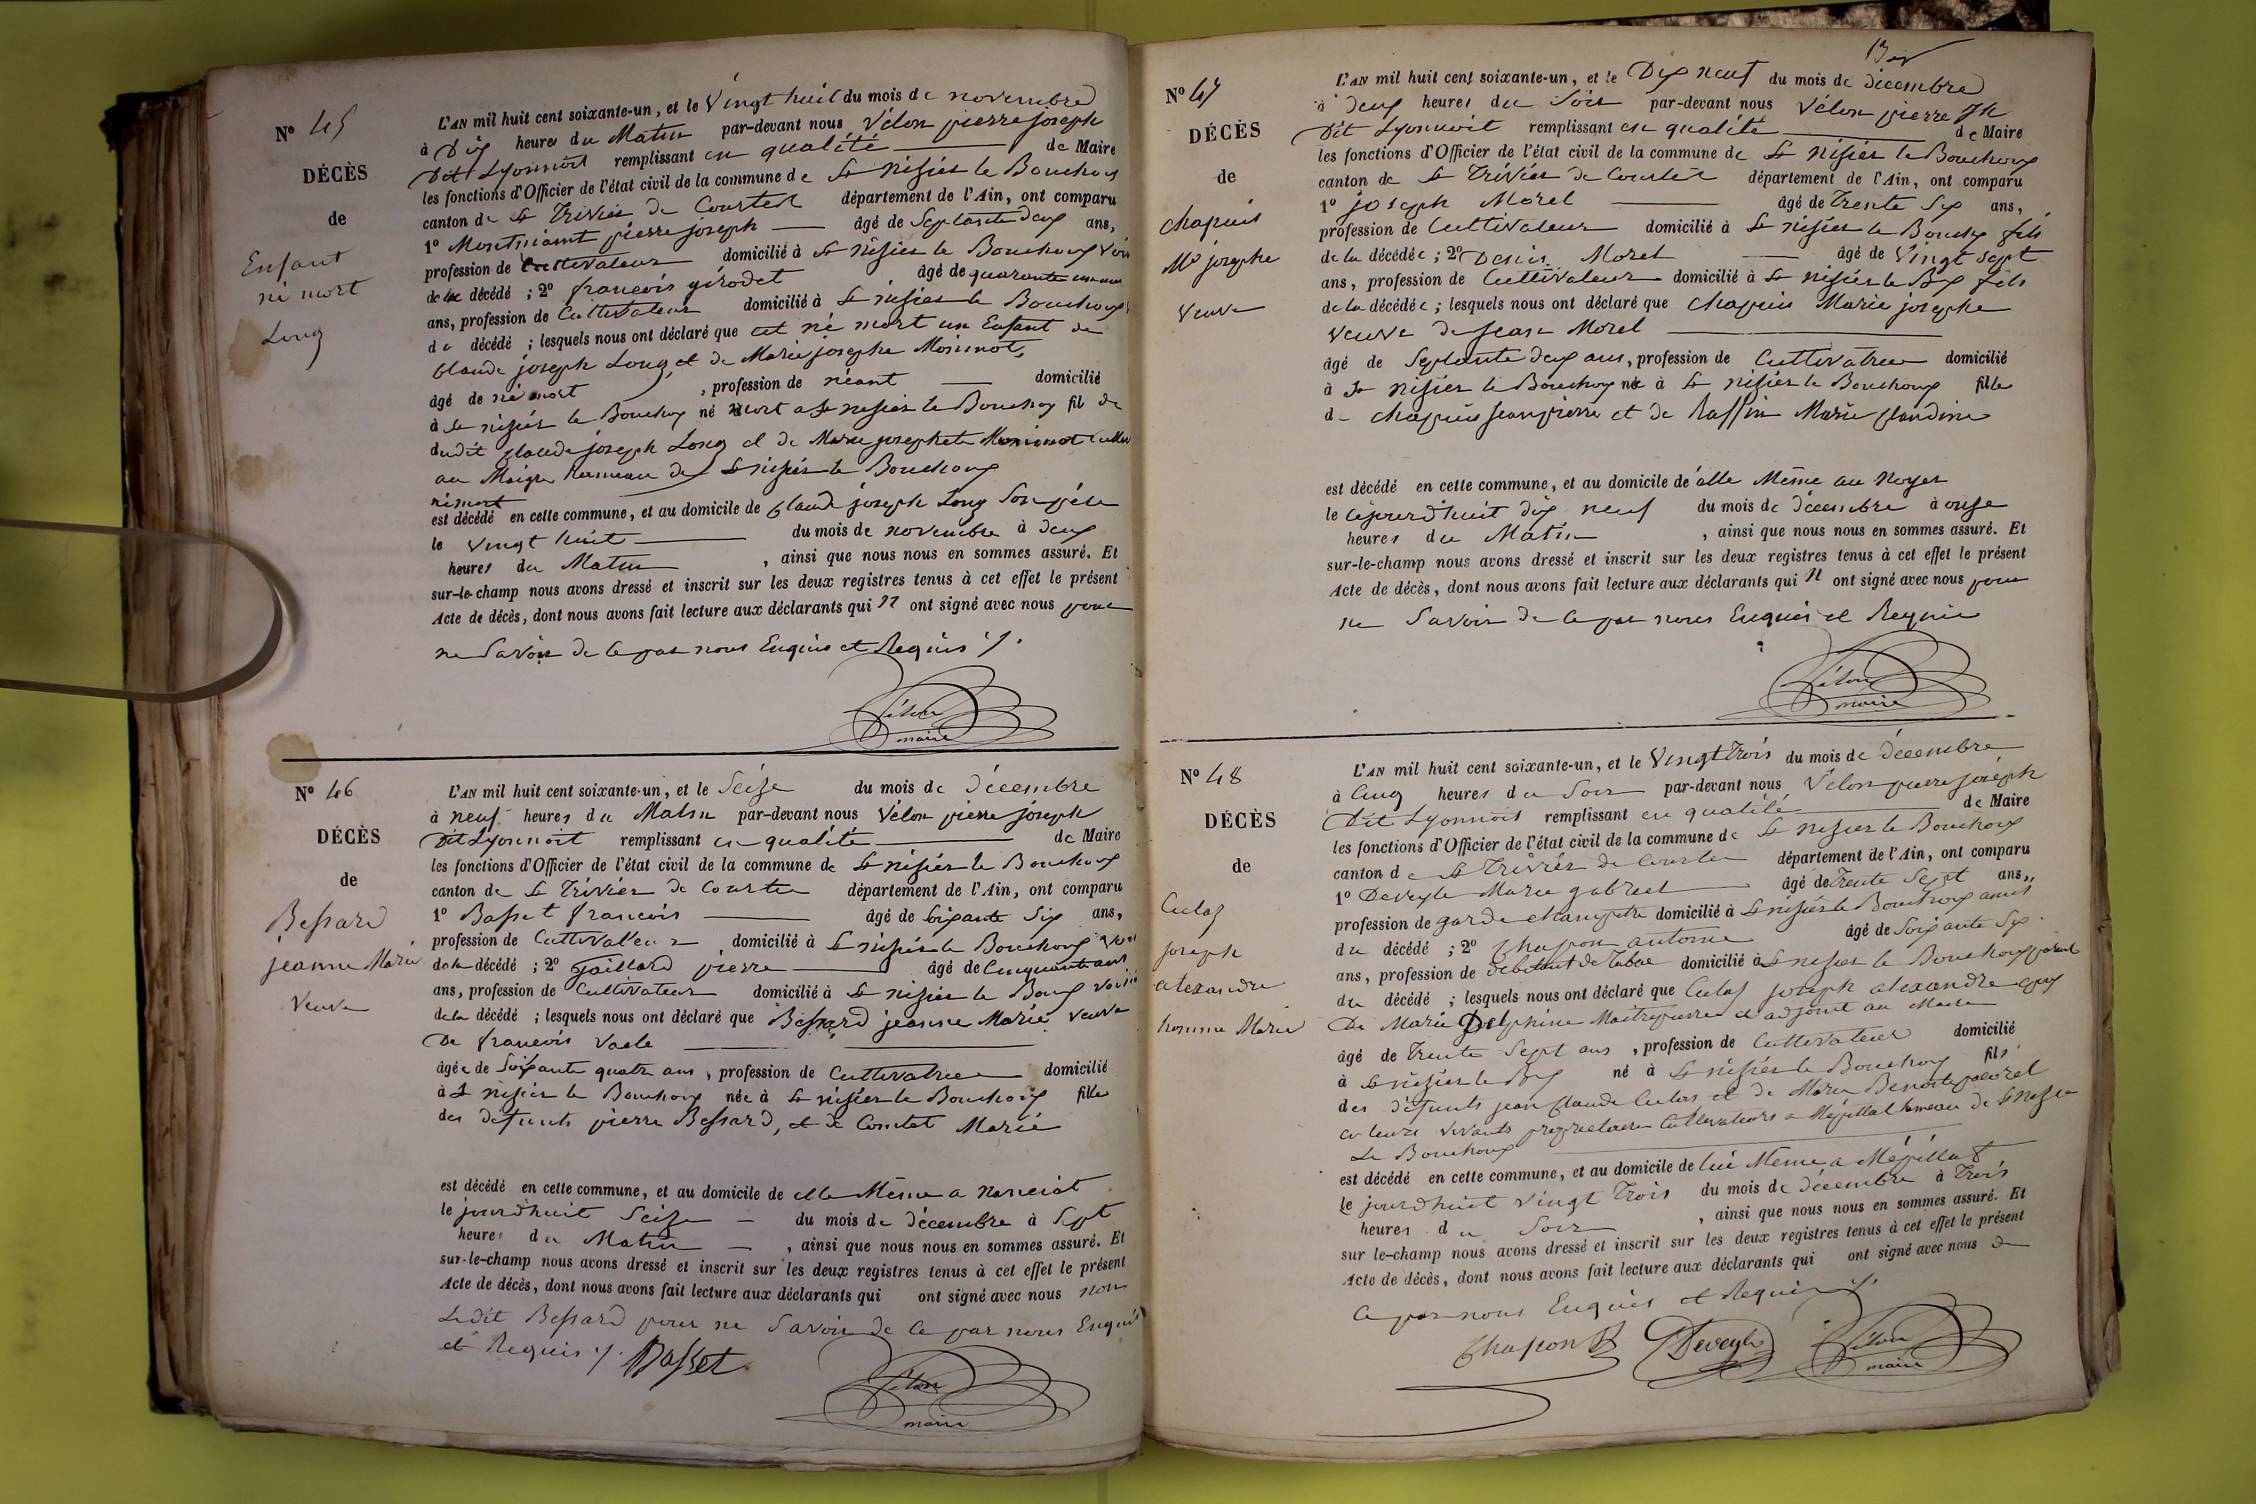 N° 45
DÉCÈS
de
Enfant
né mort
Long
L'AN mil huit cent soixante-un, et le Vingt huit du mois de novembre
à Dix heures du Matin par-devant nous Vélon pierre joseph
Dit Lyonnoit remplissant en qualité de Maire
les fonctions d'Officier de l'état civil de la commune de St nisier le Bouchoux
canton de St Trivier de Courtes département de l'Ain, ont comparu
1° pierre joseph âgé de Septante deux ans,
profession de Cultivateur domicilié à St nisier le Bouchoux
de décédé ; 2° francois girodet âgé de quarante
ans, profession de Cultivateur domicilié à St nisier le Bouchoux
du décédé ; lesquels nous ont déclaré que est né mort un Enfant de
Claude joseph Long et de Marie josephe Moninot,
âgé de né mort , profession de néant domicilié
à St nisier le Bouchoux né mort a St nisier le Bouchoux fils de
dudit Claude joseph Long et de Marie josephete Moninot
au Hameau de St nisier le Bouchoux
né mort
est décédé en cette commune, et au domicile de Claude joseph Long Son père
le vingt huit du mois de novembre à deux
heures du Matin , ainsi que nous nous en sommes assuré. Et
sur-le-champ nous avons dressé et inscrit sur les deux registres tenus à cet effet le présent
Acte de décès, dont nous avons fait lecture aux déclarants qui n ont signé avec nous pour
ne Savoir de ce par nous Enquis et Requis ./.
Vélon
maire
N° 46
DÉCÈS
de
Bessard
jeanne Marie
Veuve
L'AN mil huit cent soixante-un, et le Seize du mois de décembre
à neuf heures du Matin par-devant nous Vélon pierre joseph
Dit Lyonnoit remplissant en qualité de Maire
les fonctions d'Officier de l'état civil de la commune de St nisier le Bouchoux
canton de St Trivier de Courtes département de l'Ain, ont comparu
1° Basset francois âgé de Soixante Six ans,
profession de Cultivateur domicilié à St nisier le Bouchoux
de la décédé ; 2° Gaillard pierre âgé de Cinquante
ans, profession de Cultivateur domicilié à St nisier le Boux voisin
de la décédé ; lesquels nous ont déclaré que Bessard jeanne Marie veuve
De francois Vacle
âgée de Soixante quatre ans , profession de Cultivatrice domicilié
à St nisier le Bouchoux née à St nisier le Bouchoux fille
des défunts pierre Bessard, et de Comtet Marie
est décédé en cette commune, et au domicile de elle Même a
le jourdhuit Seize du mois de décembre à Sept
heures du Matin , ainsi que nous nous en sommes assuré. Et
sur-le-champ nous avons dressé et inscrit sur les deux registres tenus à cet effet le présent
Acte de décès, dont nous avons fait lecture aux déclarants qui ont signé avec nous non
Ledit Bessard pour ne Savoir de ce par nous Enquis
et Requis ./. Basset
Vélon
maire
N° 47
DÉCÈS
de
chapuis
Mie josephe
veuve
L'AN mil huit cent soixante-un, et le Dix neuf du mois de décembre
à deux heures du Soir par-devant nous Vélon pierre Jh
Dit Lyonnoit remplissant en qualité de Maire
les fonctions d'Officier de l'état civil de la commune de St nisier le Bouchoux
canton de St Trivier de Courtes département de l'Ain, ont comparu
1° joseph Morel âgé de Trente Six ans,
profession de Cultivateur domicilié à St nisier le Bouchoux fils
de la décédée ; 2° Denis Morel âgé de Vingt Sept
ans, profession de Cultivateur domicilié à St nisier le Bx fils
de la décédée ; lesquels nous ont déclaré que chapuis Marie josephe
veuve de jean Morel
âgé de Septante deux ans, profession de Cultivatrice domicilié
à St nisier le Bouchoux née à St nisier le Bouchoux fille
de chapuis jean pierre et de Raffin Marie Claudine
est décédé en cette commune, et au domicile de elle Même au Noyer
le cejourdhuit dix neuf du mois de décembre à onze
heures du Matin , ainsi que nous nous en sommes assuré. Et
sur-le-champ nous avons dressé et inscrit sur les deux registres tenus à cet effet le présent
Acte de décès, dont nous avons fait lecture aux déclarants qui n ont signé avec nous pour
ne Savoir de ce par nous Enquis et Requis
Vélon
maire
N° 48
DÉCÈS
de
Culas
joseph
alexandre
homme Marié
L'AN mil huit cent soixante-un, et le Vingt Trois du mois de décembre
à Cinq heures du Soir par-devant nous Vélon pierre joseph
Dit Lyonnoit remplissant en qualité de Maire
les fonctions d'Officier de l'état civil de la commune de St nisier le Bouchoux
canton de St Trivier de Courtes département de l'Ain, ont comparu
1° Deveyle Marie gabriel âgé de Trente Sept ans,
profession de garde champetre domicilié à St nisier le Bouchoux amis
du décédé ; 2° Chapon antoine âgé de Soixante Six
ans, profession de debitant de Tabac domicilié à St nisier le Bouchoux parent
du décédé ; lesquels nous ont déclaré que Culas joseph alexandre epoux
De Marie Delphine Maitrepierre et adjoint au Maire
âgé de Trente Sept ans , profession de Cultivateur domicilié
à St nisier le Boux né à St nisier le Bouchoux fils
des défunts jean Claude Culas et de Marie Benoite Morel
de leurs vivants proprietaires Cultivateurs a Mépillat hameau de St nisier
Le Bouchoux
est décédé en cette commune, et au domicile de lui Même a Mépillat
le jourdhuit vingt Trois du mois de décembre à Trois
heures du Soir , ainsi que nous nous en sommes assuré. Et
sur le-champ nous avons dressé et inscrit sur les deux registres tenus à cet effet le présent
Acte de décès, dont nous avons fait lecture aux déclarants qui ont signé avec nous de
ce par nous Enquis et Requis ./.
Chapon Deveyle Vélon
maire